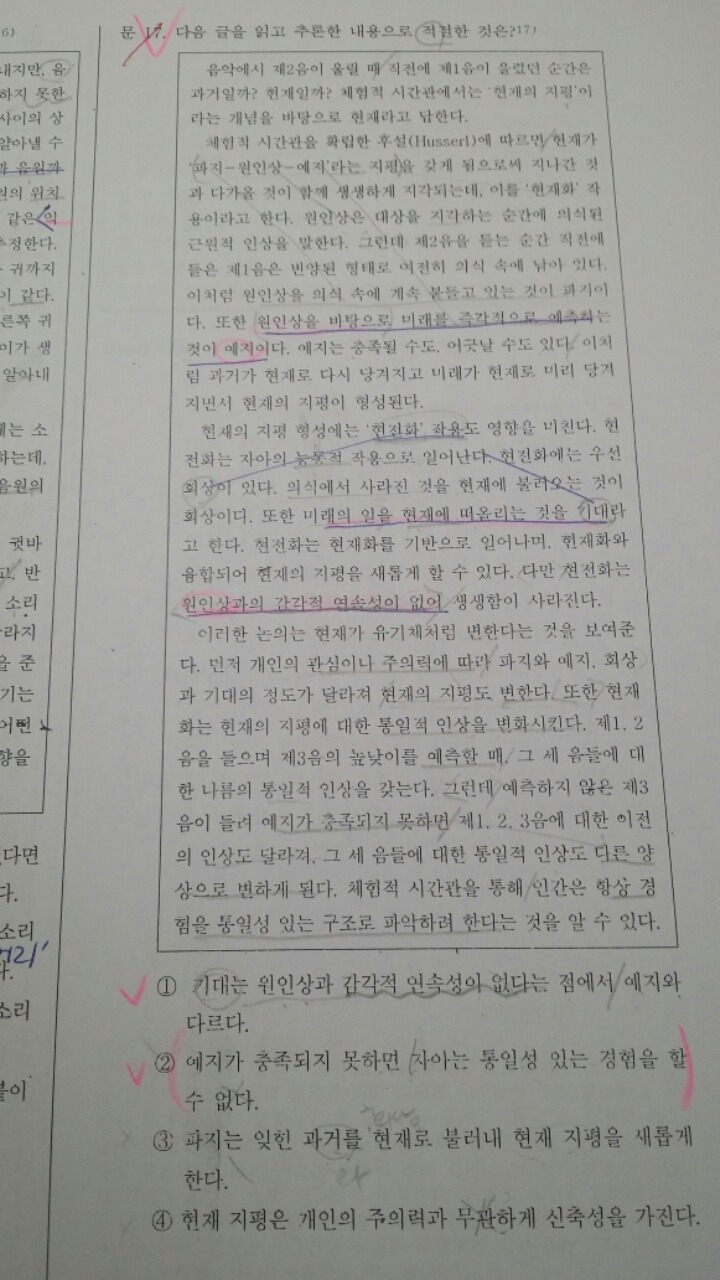 6)
내지만, 음
하지 못한
사이의 상
알아낼 수
과 음원까
원의 위치
같은 익
추정한다.
귀까지
이 같다.
른쪽 귀
이가 생
알아내
에는 소
하는데,
음원의
귓바
고, 반
소리
라지
을 준
기는
어떤
향을
다면
다.
소리
거리'
다.
소리
붙이
문 17. 다음 글을 읽고 추론한 내용으로 적절한 것은?17)
음악에서 제2음이 울릴 때 직전에 제1음이 울렸던 순간은
과거일까? 현재일까? 체험적 시간관에서는 '현재의 지평'이
라는 개념을 바탕으로 현재라고 답한다.
체험적 시간관을 확립한 후설(Husserl)에 따르면 현재가
'파지-원인상-예지'라는 지평을 갖게 됨으로써 지나간 것
과 다가올 것이 함께 생생하게 지각되는데, 이를 '현재화' 작
용이라고 한다. 원인상은 대상을 지각하는 순간에 의식된
근원적 인상을 말한다. 그런데 제2음을 듣는 순간 직전에
들은 제1음은 변양된 형태로 여전히 의식 속에 남아 있다.
이처럼 원인상을 의식 속에 계속 붙들고 있는 것이 파지이
다. 또한 원인상을 바탕으로 미래를 즉각적으로 예측하는
것이 예지이다. 예지는 충족될 수도, 어긋날 수도 있다. 이처
럼 과거가 현재로 다시 당겨지고 미래가 현재로 미리 당겨
지면서 현재의 지평이 형성된다.
현재의 지평 형성에는 '현전화' 작용도 영향을 미친다. 현
전화는 자아의 능동적 작용으로 일어난다. 현전화에는 우선
회상이 있다. 의식에서 사라진 것을 현재에 불러오는 것이
회상이다. 또한 미래의 일을 현재에 떠올리는 것을 기대라
고 한다. 현전화는 현재화를 기반으로 일어나며, 현재화와
융합되어 현재의 지평을 새롭게 할 수 있다. 다만 현전화는
원인상과의 감각적 연속성이 없어 생생함이 사라진다.
이러한 논의는 현재가 유기체처럼 변한다는 것을 보여준
다. 먼저 개인의 관심이나 주의력에 따라 파지와 예지, 회상
과 기대의 정도가 달라져 현재의 지평도 변한다. 또한 현재
화는 현재의 지평에 대한 통일적 인상을 변화시킨다. 제1, 2
음을 들으며 제3음의 높낮이를 예측할 때, 그 세 음들에 대
한 나름의 통일적 인상을 갖는다. 그런데 예측하지 않은 제3
음이 들려 예지가 충족되지 못하면 제1, 2, 3음에 대한 이전
의 인상도 달라져, 그 세 음들에 대한 통일적 인상도 다른 양
상으로 변하게 된다. 체험적 시간관을 통해 인간은 항상 경
험을 통일성 있는 구조로 파악하려 한다는 것을 알 수 있다.
① 기대는 원인상과 감각적 연속성이 없다는 점에서 예지와
다르다.
② 예지가 충족되지 못하면 자아는 통일성 있는 경험을 할
수 없다.
③ 파지는 잊힌 과거를 현재로 불러내 현재 지평을 새롭게
한다.
④ 현재 지평은 개인의 주의력과 무관하게 신축성을 가진다.